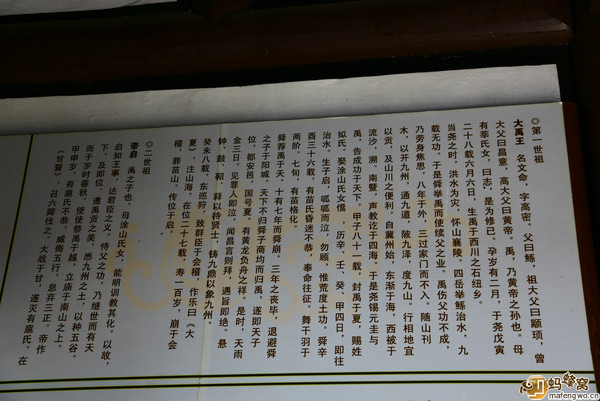 ◎第一世祖
大禹王 名文命，字高密。父曰鲧，祖大父曰颛顼，曾
大父曰昌意，高大父曰黄帝。禹，乃黄帝之孙也。母
有莘氏女，曰志，是为修已。孕岁有二月，于尧戊寅
二十八载六月六日，生禹于西川之石纽乡。
当尧之时，洪水为灾，怀山襄陵。四岳举鲧治水，九
载无功。于是舜举禹而使续父之业。禹伤父功不成，
乃劳身焦思，八年于外，三过家门而不入。随山刊
木，以开九州，通九道，陂九泽，度九山。行相地宜
以贡，及山川之便利。自冀州始，东渐于海，西被于
流沙，朔、南暨，声教讫于四海。于是尧锡元圭与
禹，告成功于天下。甲子八十一载，封禹于夏，赐姓
姒氏。娶涂山氏女憍，历辛、壬、癸、甲四日，即往
治水。生子启，呱呱而泣，勿顾，惟荒度土功。舜辛
酉三十六载，有苗民昏迷不恭，奉命往征，舞干羽于
两阶，七旬，有苗格化。
舜荐禹于天，十有七年而舜崩。三年之丧毕，退避舜
之子于阳城，天下不归舜子商均而归禹，遂即天子
位，都安邑，国号夏。有黄龙负舟之祥。是时，天雨
金三日。见罪人即泣，闻昌言则拜，遇旨即绝。悬
钟、鼓、鞀，鞀以待贤士，铸九鼎以象九州。
癸未八载，东巡狩，致群臣于会稽，作乐曰《大
夏》，注山海，在位二十七载，寿一百岁，崩于会
稽，葬苗山，传位于启。
◎二世祖
帝启 禹之子也，母涂山氏女，能明训教其化。以故，
启知王事，达君臣之义，恃父之功，乃继世而有天
下。及即位，遵禹贡之美，悉九州之土，以种五谷。
而于岁时春秋，使使祭禹于越，立庙于南山之上。
甲申岁，有扈氏不恭，威侮五行，怠弃三正。帝作
《甘誓》，召六卿伐之，大战于甘，遂灭有扈氏。在
蚂蜂窝
mafengwo.cn